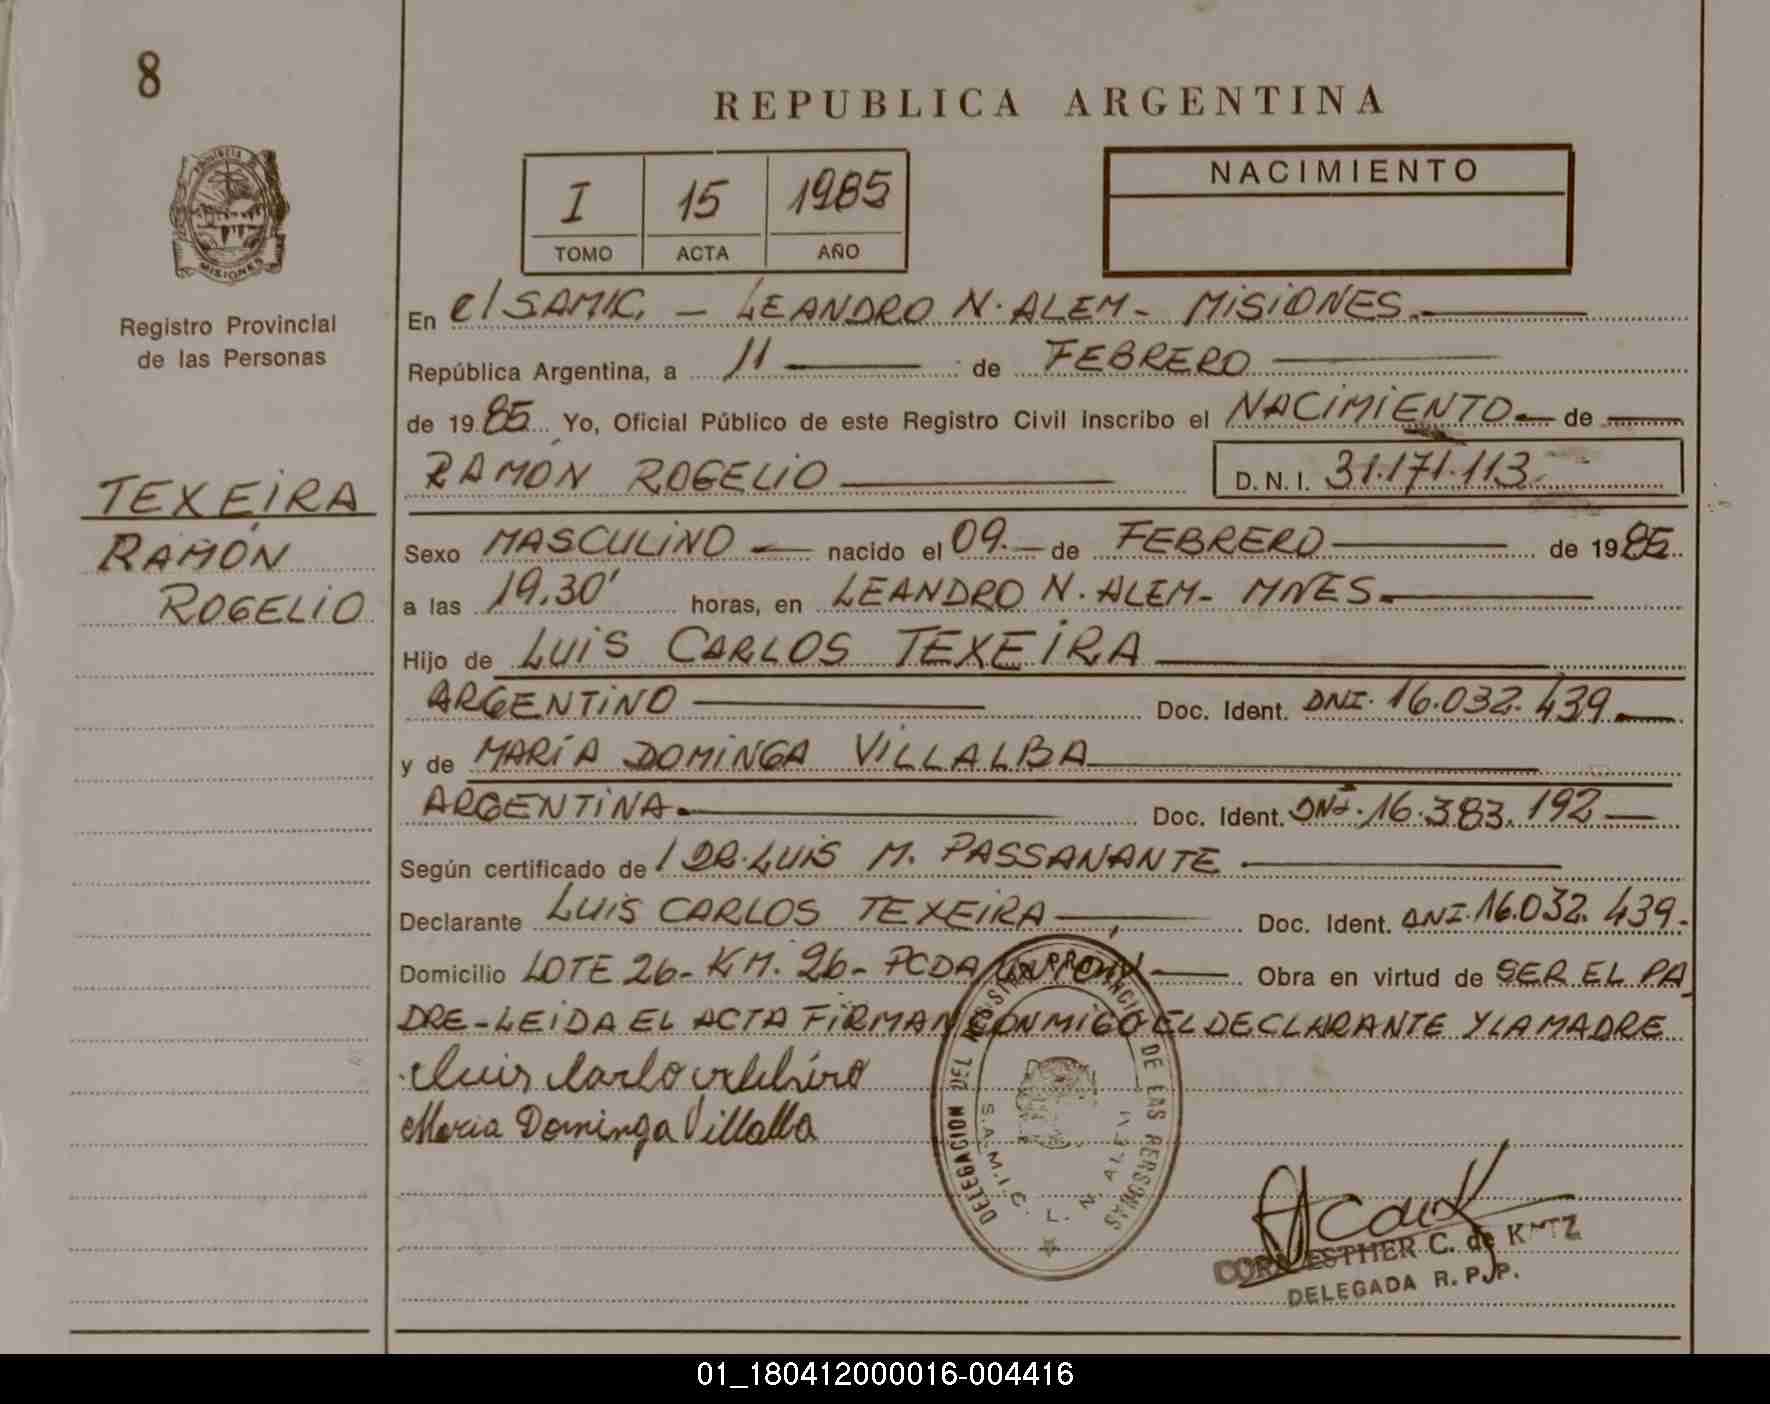 8
REPUBLICA ARGENTINA
I 15 1985
TOMO ACTA AÑO
NACIMIENTO
PROVINCIA DE MISIONES
Registro Provincial
de las Personas
TEXEIRA
RAMÓN
ROGELIO
En el SAMIC. - LEANDRO N. ALEM - MISIONES.
República Argentina, a 11 de FEBRERO
de 1985 Yo, Oficial Público de este Registro Civil inscribo el NACIMIENTO de
RAMÓN ROGELIO D.N.I. 31.171.113
Sexo MASCULINO nacido el 09. de FEBRERO de 1985
a las 19.30' horas, en LEANDRO N. ALEM - MNES.
Hijo de LUIS CARLOS TEXEIRA
ARGENTINO Doc. Ident. DNI. 16.032.439
y de MARÍA DOMINGA VILLALBA
ARGENTINA. Doc. Ident. DNI. 16.383.192
Según certificado de / DR. LUIS M. PASSANANTE
Declarante LUIS CARLOS TEXEIRA Doc. Ident. DNI. 16.032.439.
Domicilio LOTE 26 - KM. 26 - PCDA Obra en virtud de SER EL PA
DRE - LEIDA EL ACTA FIRMAN CONMIGO EL DECLARANTE Y LA MADRE
Luis Carlo
Maria Dominga Villalba
DELEGACION DEL REGISTRO PROVINCIAL DE LAS PERSONAS
S.A.M.I.C. L. N. ALEM
ESTHER C. de KATZ
DELEGADA R.P.P.
01_180412000016-004416